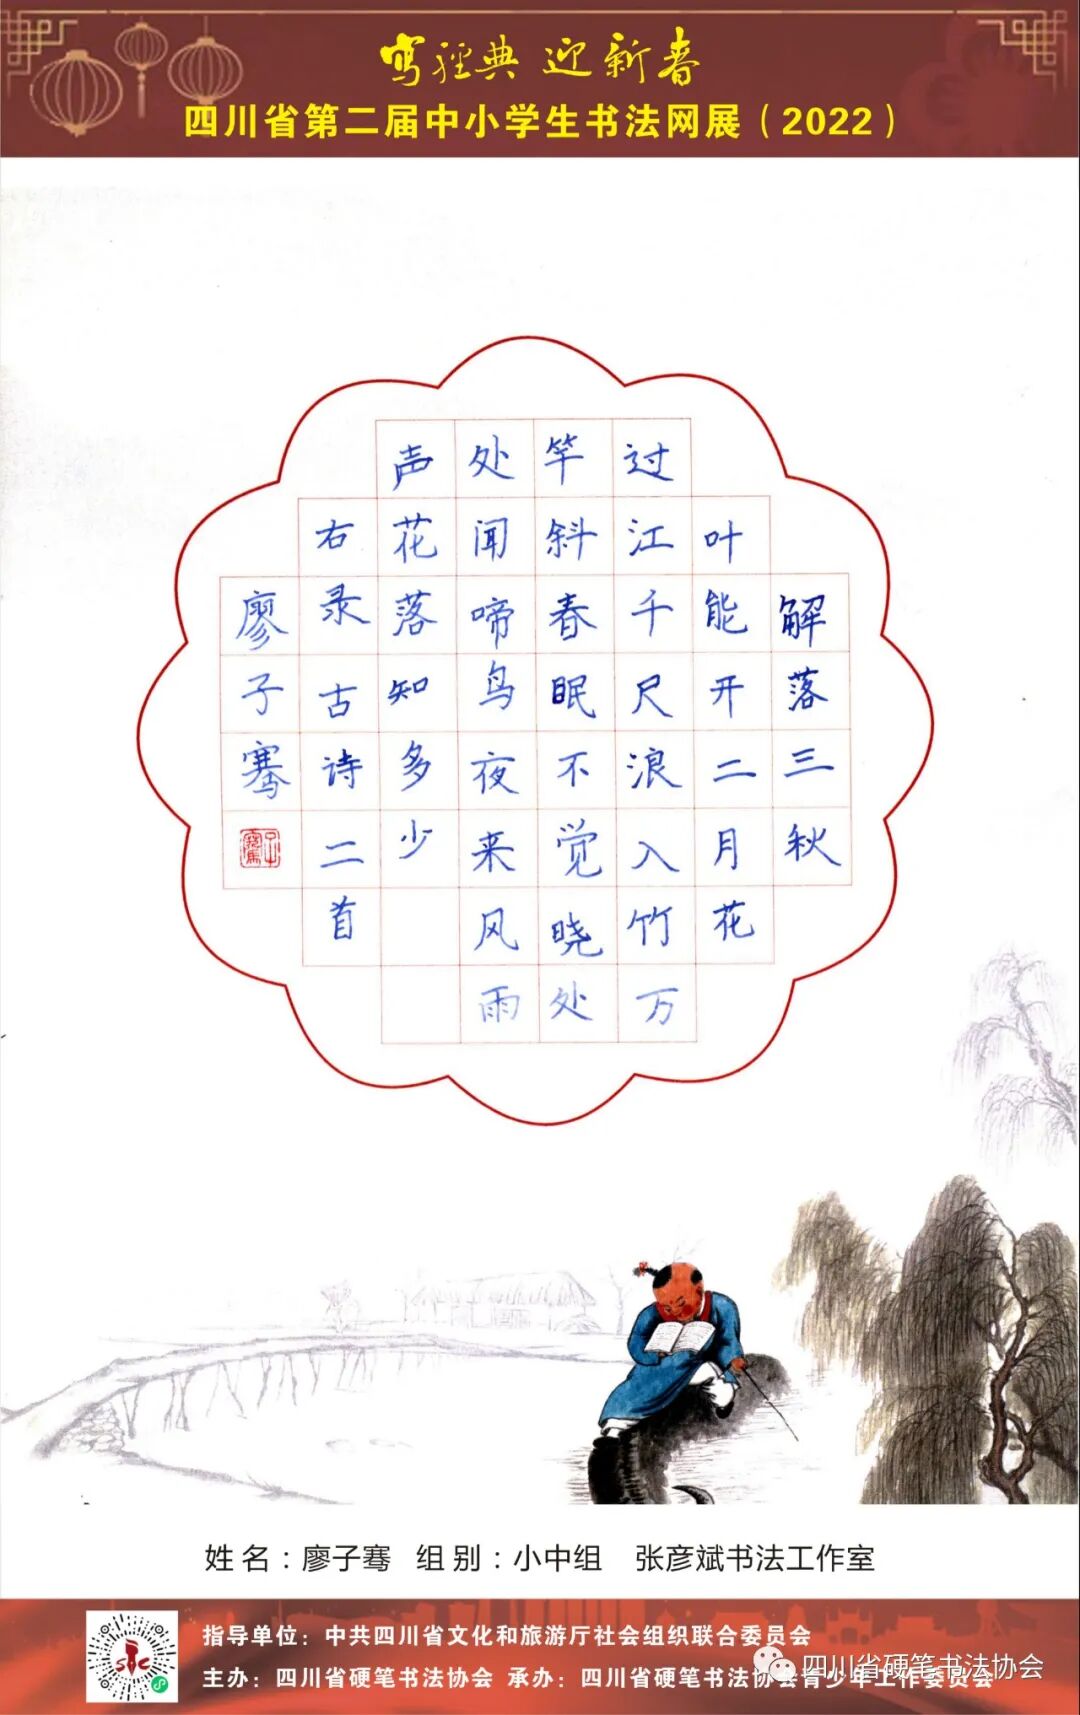 写经典 迎新春
四川省第二届中小学生书法网展（2022）
解落三秋
叶能开二月花
过江千尺浪入竹万
竿斜春眠不觉晓处
处闻啼鸟夜来风雨
声花落知多少
右录古诗二首
廖子骞
姓名：廖子骞 组别：小中组 张彦斌书法工作室
指导单位：中共四川省文化和旅游厅社会组织联合委员会
主办：四川省硬笔书法协会 承办：四川省硬笔书法协会青少年工作委员会
四川省硬笔书法协会